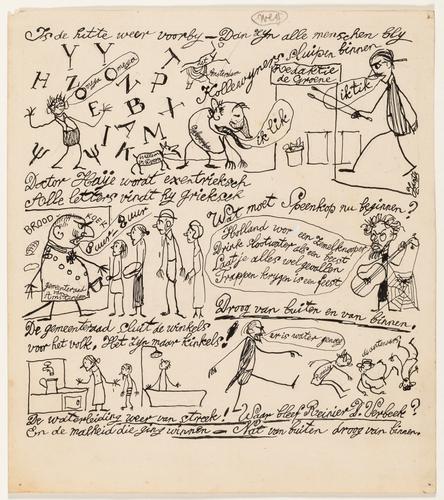 Is de hitte weer voorby – Dan zyn alle menschen bly
Hollewyners sluipen binnen
Redaktie
de Groene
Amsterdam
ik tik
ik lik
omega omega
Doctor Haije wordt exentrieksch
Alle letters vindt hy grieksch
Wat moet Speenkop nu beginnen?
BROOD
KOEK
Guur Guur
gemeenteraad
Amsterdam
Holland wor een
Drink slootwater als een beest
Laat je alles welgevallen
Trappen krygen is een feest
Droog van buiten en van binnen.
De gemeenteraad sluit de winkels
voor het volk. Het zyn maar kinkels!
er is water
De waterleiding weer van streek!
Waar bleef Reinier D. Verbeek?
En de malheid die ging winnen –
Nat van buiten droog van binnen.